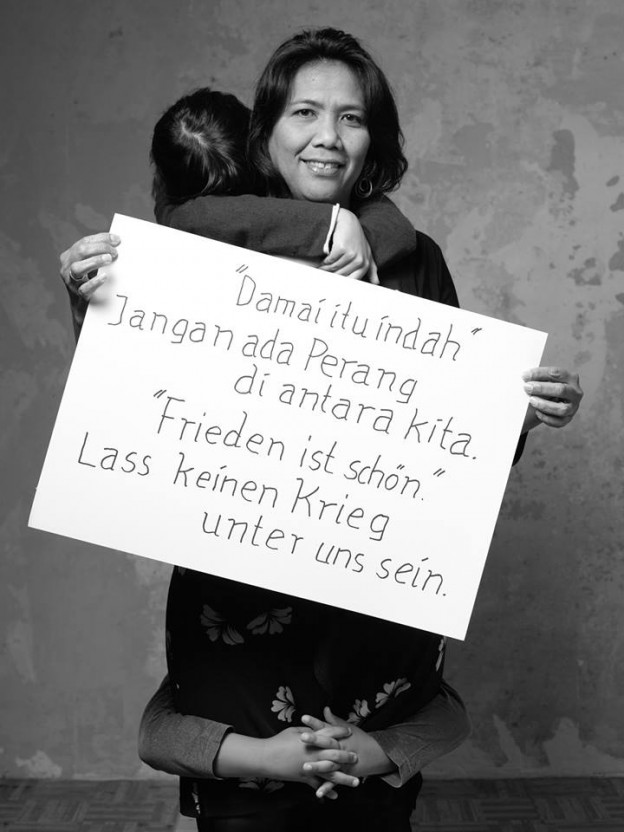 "Damai itu indah"
Jangan ada Perang
di antara kita.
"Frieden ist schön."
Lass keinen Krieg
unter uns sein.